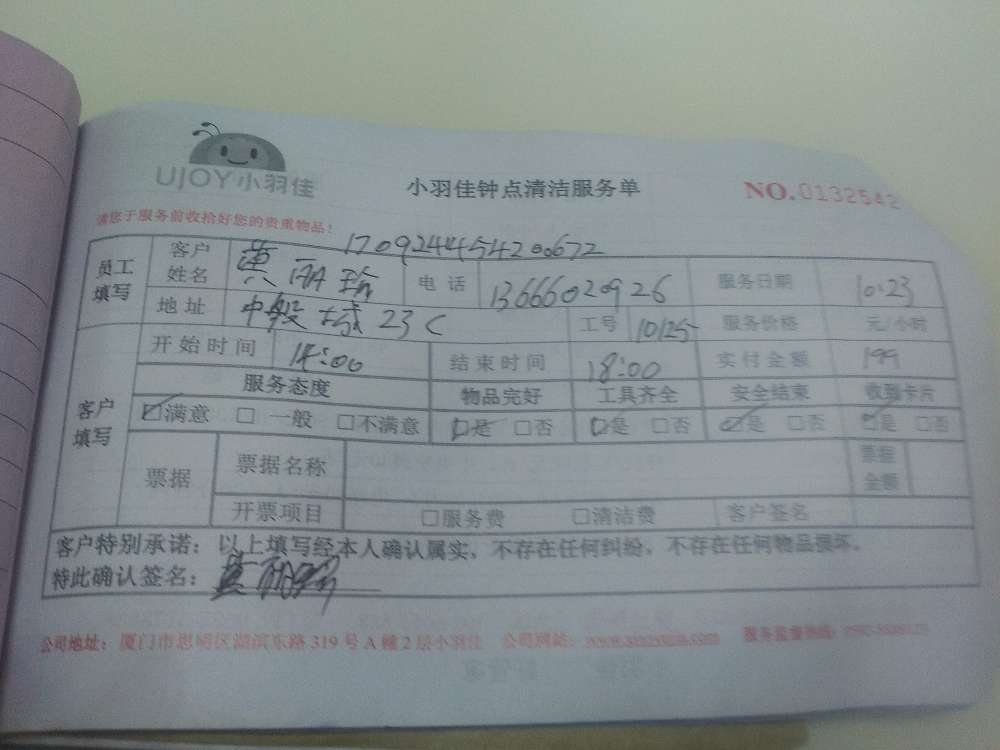 UJOY小羽佳
小羽佳钟点清洁服务单 NO.0132542
请您于服务前收拾好您的贵重物品！
1709244454200672
员工填写 客户姓名 黄 电话 13666020926 服务日期 10.23
地址 23C 工号 10125 服务价格 元/小时
客户填写 开始时间 14:00 结束时间 18:00 实付金额 199
服务态度 物品完好 工具齐全 安全结束 收到卡片
☑满意 □一般 □不满意 ☑是 □否 ☑是 □否 ☑是 □否 ☑是 □否
票据 票据名称 票据金额
开票项目 □服务费 □清洁费 客户签名
客户特别承诺：以上填写经本人确认属实，不存在任何纠纷，不存在任何物品损坏。
特此确认签名：黄
公司地址：厦门市思明区湖滨东路319号A幢2层小羽佳 公司网站： 服务监督热线：